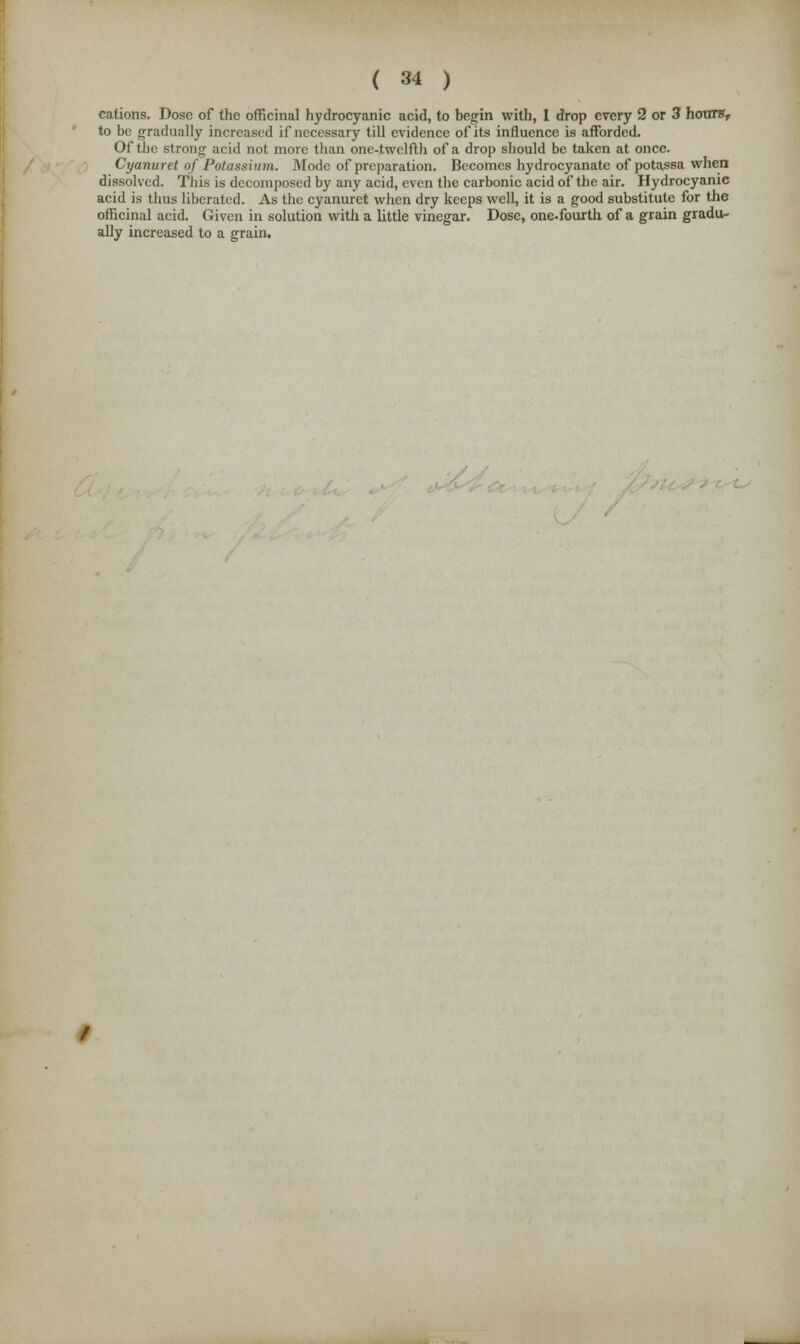 ( 34 )
cations. Dose of the officinal hydrocyanic acid, to begin with, 1 drop every 2 or 3 hours,
to be gradually increased if necessary till evidence of its influence is afforded.
Of the strong acid not more than one-twelfth of a drop should be taken at once.
Cyanuret of Potassium. Mode of preparation. Becomes hydrocyanate of potassa when
dissolved. This is decomposed by any acid, even the carbonic acid of the air. Hydrocyanic
acid is thus liberated. As the cyanuret when dry keeps well, it is a good substitute for the
officinal acid. Given in solution with a little vinegar. Dose, one-fourth of a grain gradu-
ally increased to a grain.
mode of obtaining prussic
acid from plants